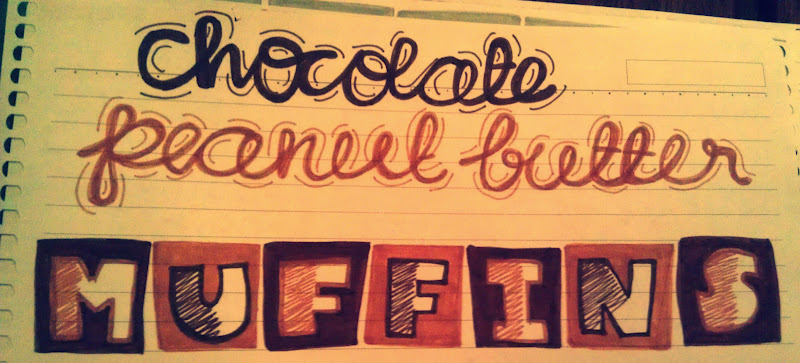 chocolate
peanut butter
MUFFINS